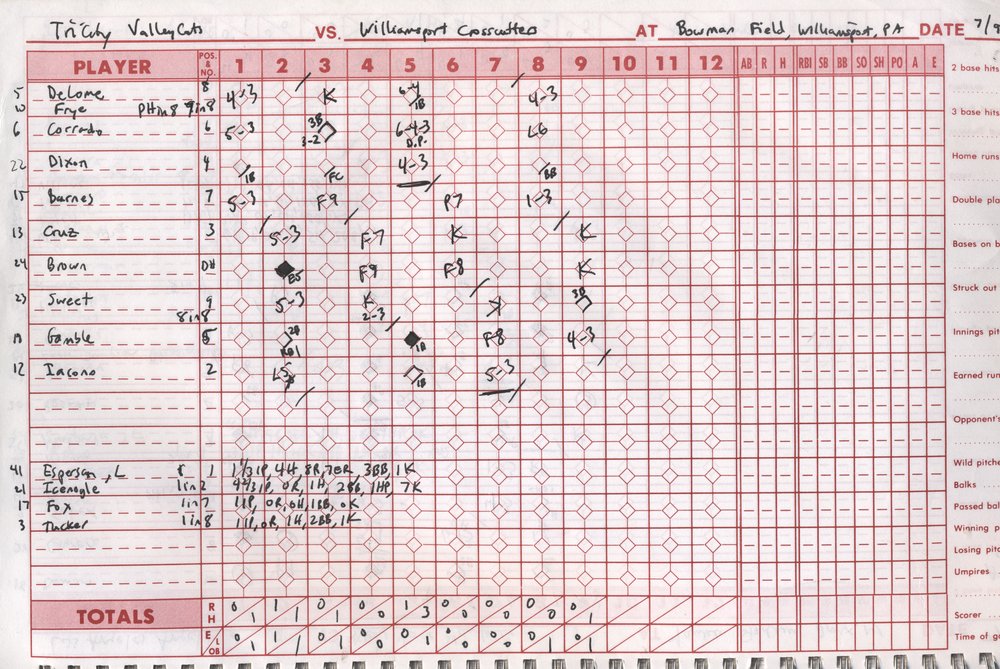 Tri-City ValleyCats VS. Williamsport Crosscutters AT Bowman Field, Williamsport, PA DATE 7/9
PLAYER POS. & NO. 1 2 3 4 5 6 7 8 9 10 11 12 AB R H RBI SB BB SO SH PO A E
2 base hits
5 DeLome 8 4-3 K 6-4 1B 4-3
10 Frye PH in 8 9 in 8
3 base hits
6 Corrado 6 5-3 3B 3-2 6-4-3 D.P. L6
Home runs
22 Dixon 4 1B FC 4-3 BB
15 Barnes 7 5-3 F9 P7 1-3
Double pla
13 Cruz 3 5-3 F7 K K
Bases on b
24 Brown DH E5 F9 F8 K
Struck out
23 Sweet 9 5-3 K 2-3 K 3B
8 in 8
Innings pit
19 Gamble 5 2B RBI 1B F8 4-3
12 Iacono 2 L5 1B 5-3
Earned run
Opponent's
41 Esperson, L 1 1 1/3 IP, 4H, 8R, 7ER, 3BB, 1K
Wild pitche
21 Icenogle 1 in 2 4 2/3 IP, 0R, 1H, 2BB, 1HP, 7K
Balks
17 Fox 1 in 7 1IP, 0R, 0H, 1BB, 0K
Passed bal
3 Tucker 1 in 8 1IP, 0R, 1H, 2BB, 1K
Winning p
Losing pitc
Umpires
TOTALS R H 0 1 1 1 0 1 0 0 1 3 0 0 0 0 0 0 0 1
Scorer
E LOB 0 1 1 1 0 1 0 0 0 1 0 0 0 0 0 1 0 1
Time of ga